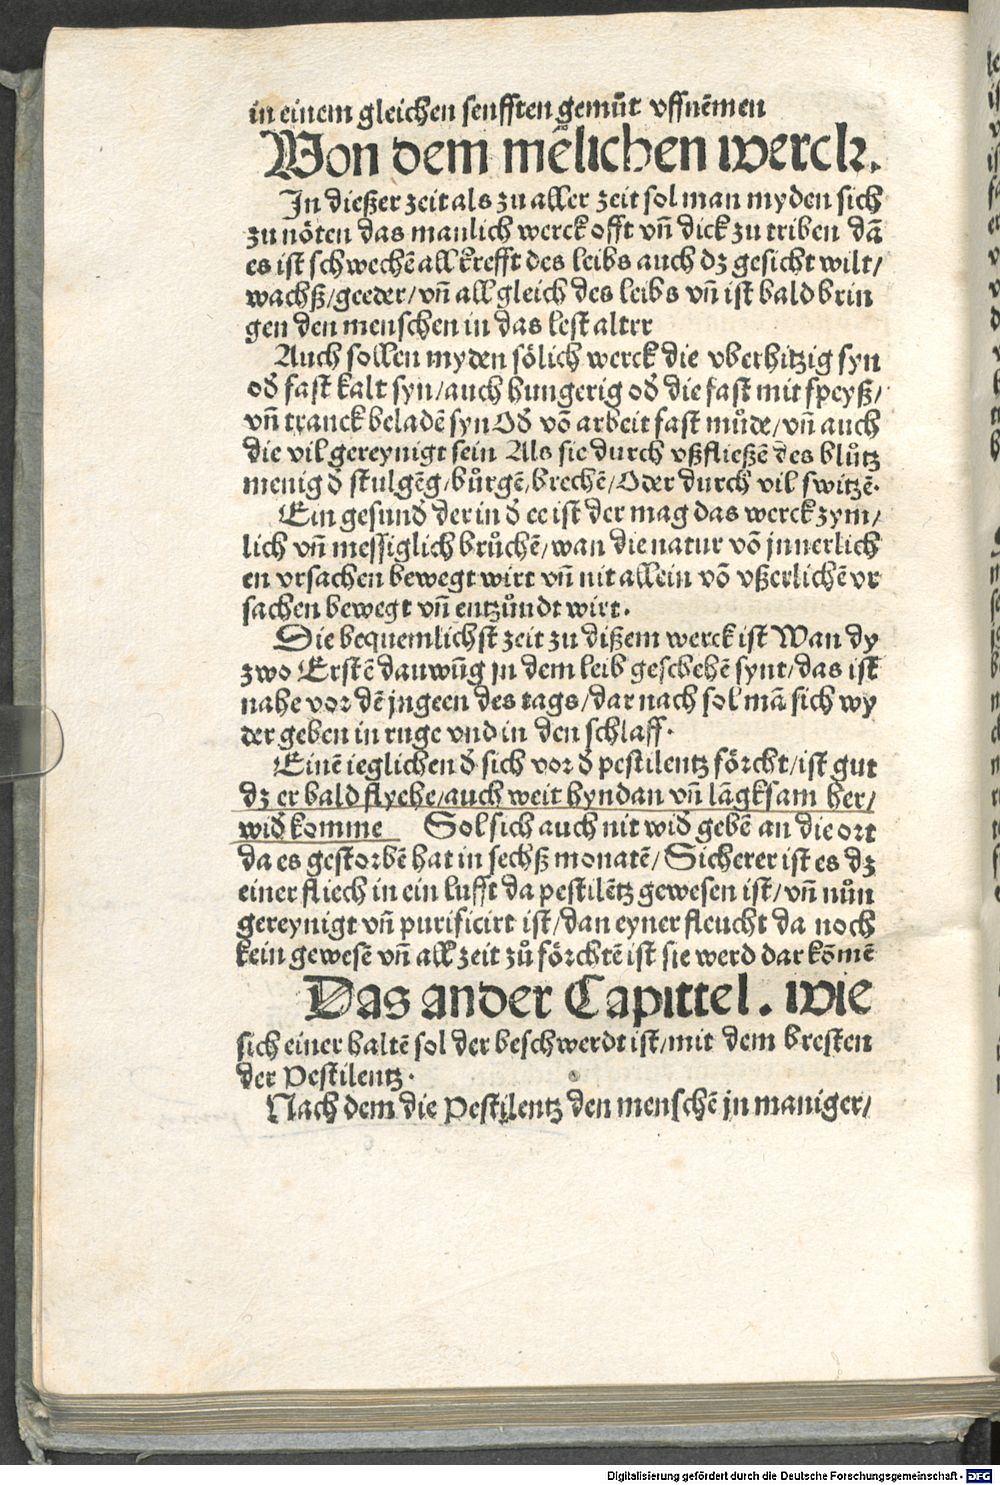 in einem gleichen senfften gemüt vffnēmen
Won dem mēlichen werck.
In dießer zeit als zu aller zeit sol man myden sich
zu nöten das manlich werck offt vn̄ dick zu triben dā
es ist schwechē all krefft des leibs auch dz gesicht wilt/
wachß/geeder/vn̄ all gleich des leibs vn̄ ist bald brin
gen den menschen in das lest alter
Auch sollen myden sölich werck die vberhitzig syn
od̄ fast kalt syn/auch hungerig od̄ die fast mit speyß/
vn̄ tranck beladē syn Od̄ vō arbeit fast můde/vn̄ auch
die vil gereynigt sein Als sie durch vßfließē des blůtz
menig d̄ stulgēg/bůrgē/brechē/Oder durch vil switzē.
Ein gesund der in d̄ ee ist der mag das werck zym/
lich vn̄ messiglich brůchē/wan die natur vō jnnerlich
en vrsachen bewegt wirt vn̄ nit allein vō vßerlichē vr
sachen bewegt vn̄ entzůndt wirt.
Die bequemlichst zeit zu dißem werck ist Wan dy
zwo Erstē dauwūg jn dem leib geschehē synt/das ist
nahe vor dē jngeen des tags/dar nach sol mā sich wy
der geben in ruge vnd in den schlaff.
Einē ieglichen d̄ sich vor d̄ pestilentz förcht/ist gut
dz er bald flyehe/auch weit hyndan vn̄ lāgksam her/
wid̄ komme Sol sich auch nit wid̄ gebē an die ort
da es gestorbē hat in sechß monatē/Sicherer ist es dz
einer fliech in ein lufft da pestilētz gewesen ist/vn̄ nůn
gereynigt vn̄ purificirt ist/dan eyner fleucht da noch
kein gewesē vn̄ all zeit zů förchtē ist sie werd dar kōmē
Das ander Capittel. wie
sich einer haltē sol der beschwerdt ist/mit dem bresten
der Pestilentz.
Nach dem die Pestilentz den menschē jn maniger/
Digitalisierung gefördert durch die Deutsche Forschungsgemeinschaft - DFG